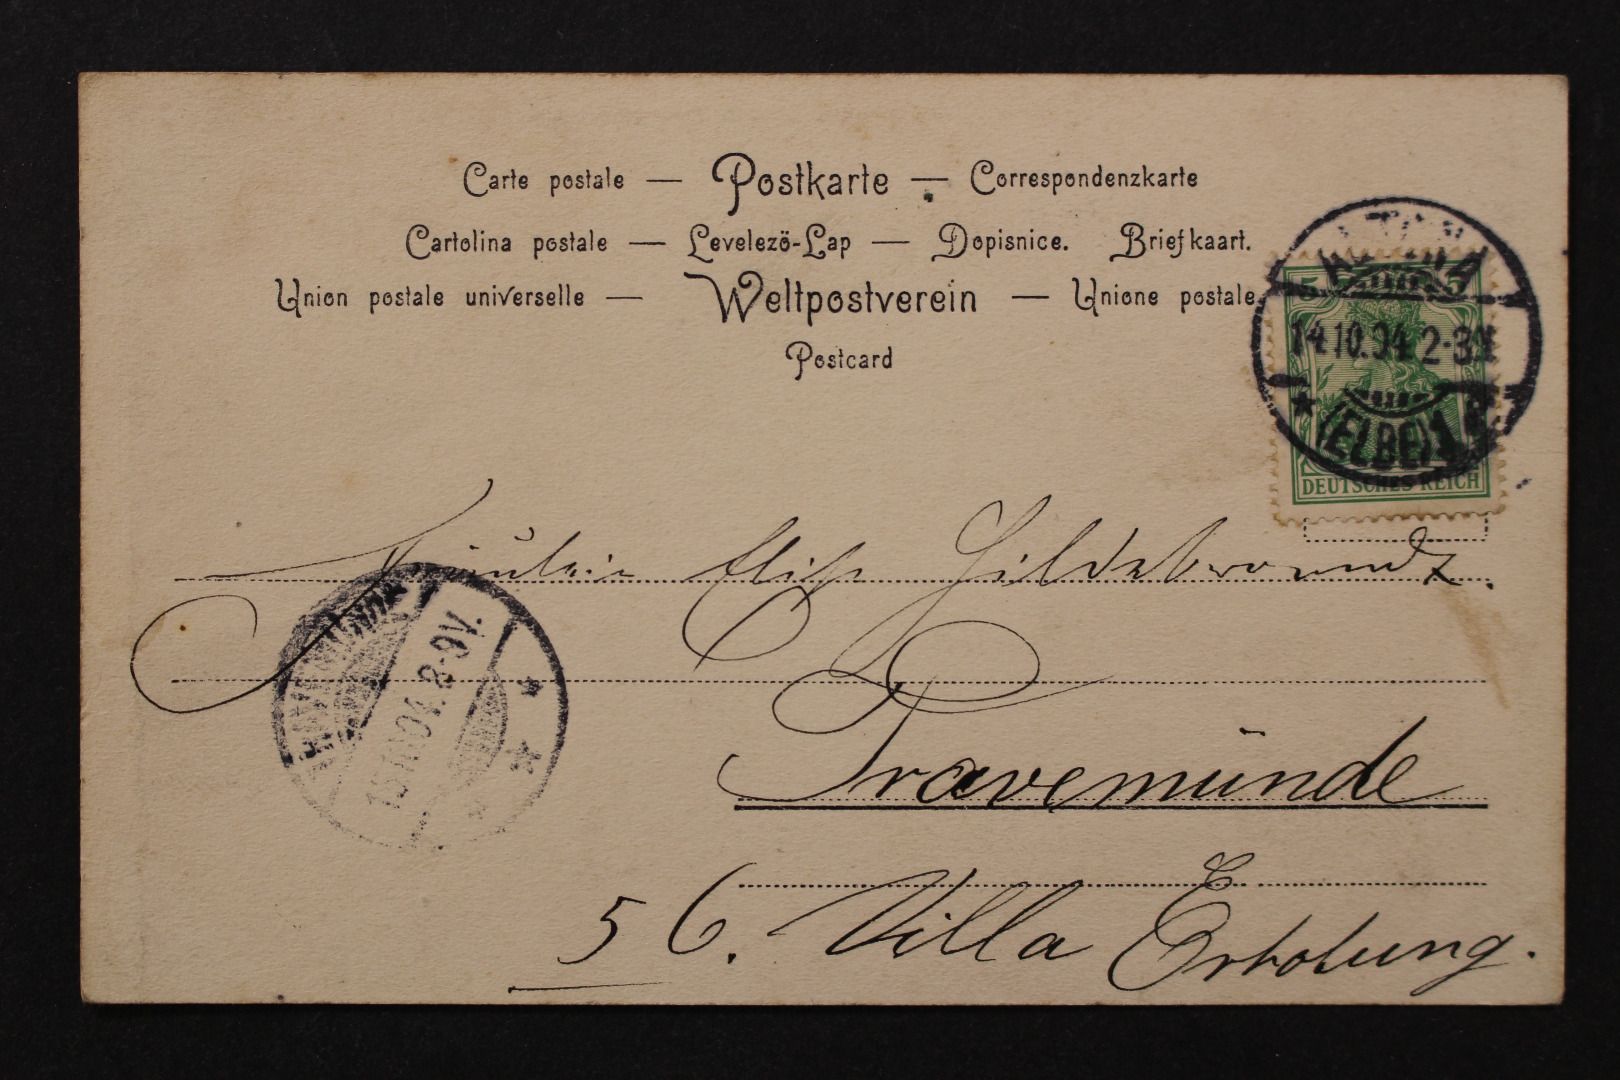 Carte postale — Postkarte — Correspondenzkarte
Cartolina postale — Levelező-Lap — Dopisnice. Briefkaart.
Union postale universelle — Weltpostverein — Unione postale
Postcard
5 5
ALTONA
14.10.04. 2-3N
* (ELBE) 1 *
DEUTSCHES REICH
Fräulein Elise Hildebrandt.
TRAVEMÜNDE
15.10.04. 8-9V.
* *
Travemünde
56. Villa Erholung.